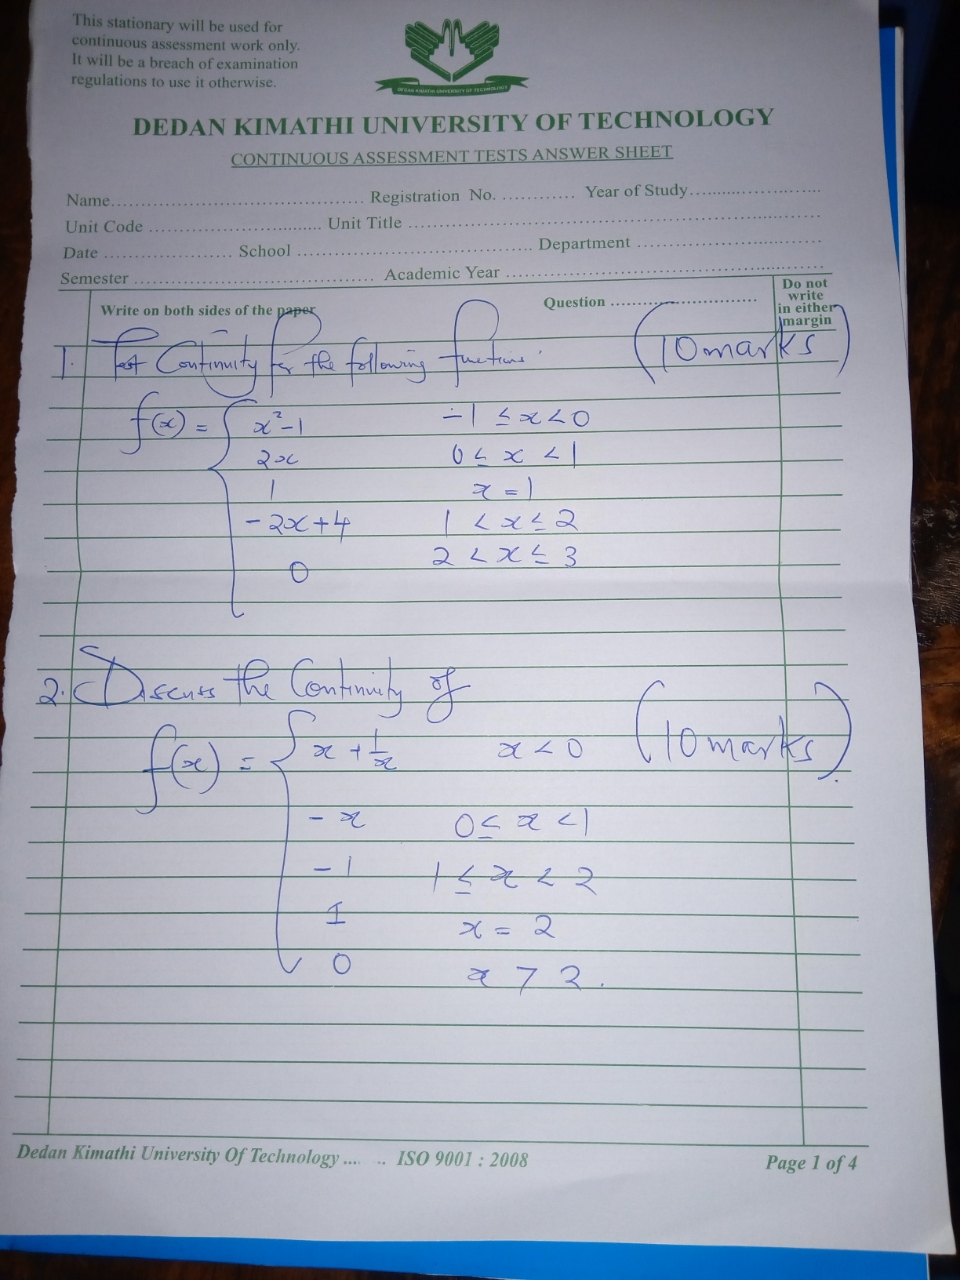 This stationary will be used for
continuous assessment work only.
It will be a breach of examination
regulations to use it otherwise.
DEDAN KIMATHI UNIVERSITY OF TECHNOLOGY
DEDAN KIMATHI UNIVERSITY OF TECHNOLOGY
CONTINUOUS ASSESSMENT TESTS ANSWER SHEET
Name.................................... Registration No. ............ Year of Study......................
Unit Code ........................... Unit Title ..............................................................
Date ..................... School ................................... Department ..............................
Semester .................................... Academic Year ................................................
Write on both sides of the paper Question ............................
Do not
write
in either
margin
1. Test Continuity for the following functions. (10 marks)
f(x) = { x²-1 -1 ≤ x < 0
2x 0 ≤ x < 1
1 x = 1
-2x+4 1 < x ≤ 2
0 2 < x ≤ 3
2. Discuss the Continuity of
f(x) = { x + 1/x x < 0 (10 marks).
-x 0 ≤ x < 1
-1 1 ≤ x < 2
1 x = 2
0 x > 2.
Dedan Kimathi University Of Technology .... .. ISO 9001 : 2008 Page 1 of 4